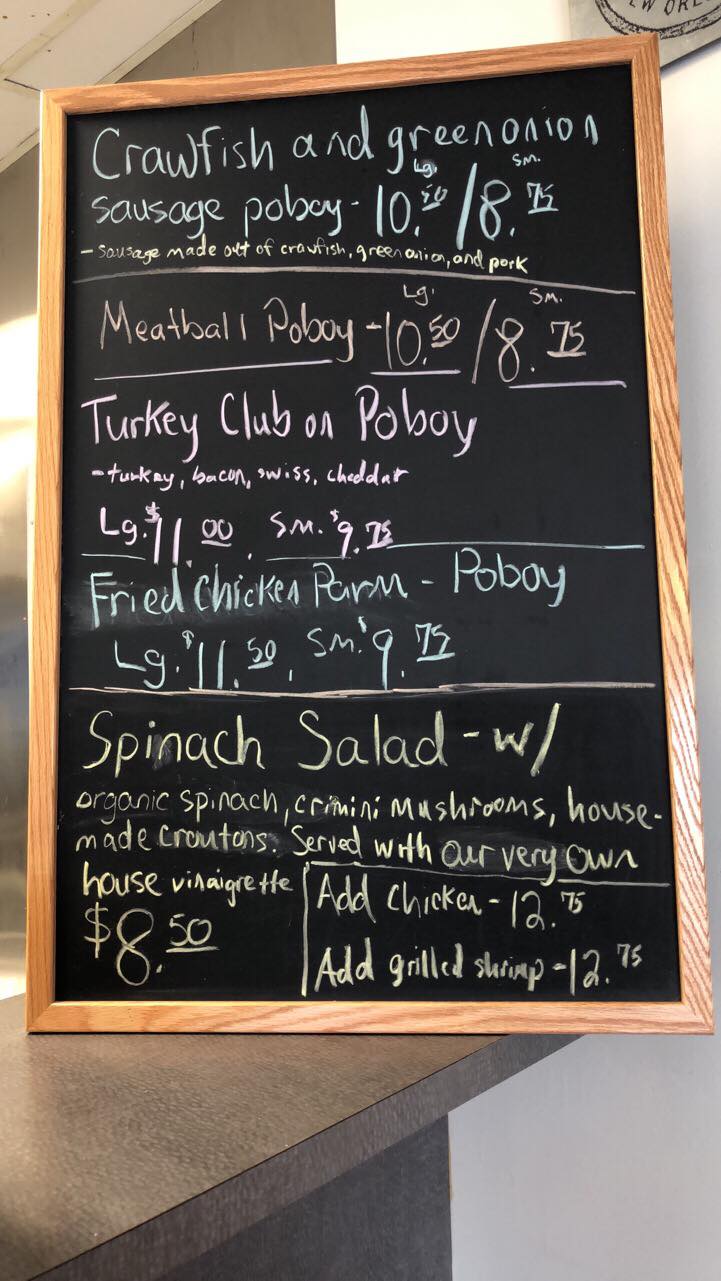 EW ORL
Crawfish and greenonion
Lg. Sm.
sausage poboy - 10.50 / 8.75
- sausage made out of crawfish, greenonion, and pork
Lg. Sm.
Meatball Poboy - 10.50 / 8.75
Turkey Club on Poboy
- turkey, bacon, swiss, cheddar
Lg. $11.00, Sm. $9.75
Fried Chicken Parm - Poboy
Lg. $11.50, Sm. $9.75
Spinach Salad - w/
organic spinach, crimini mushrooms, house-
made croutons. Served with our very own
house vinaigrette
$8.50
Add chicken - 12.75
Add grilled shrimp - 12.75